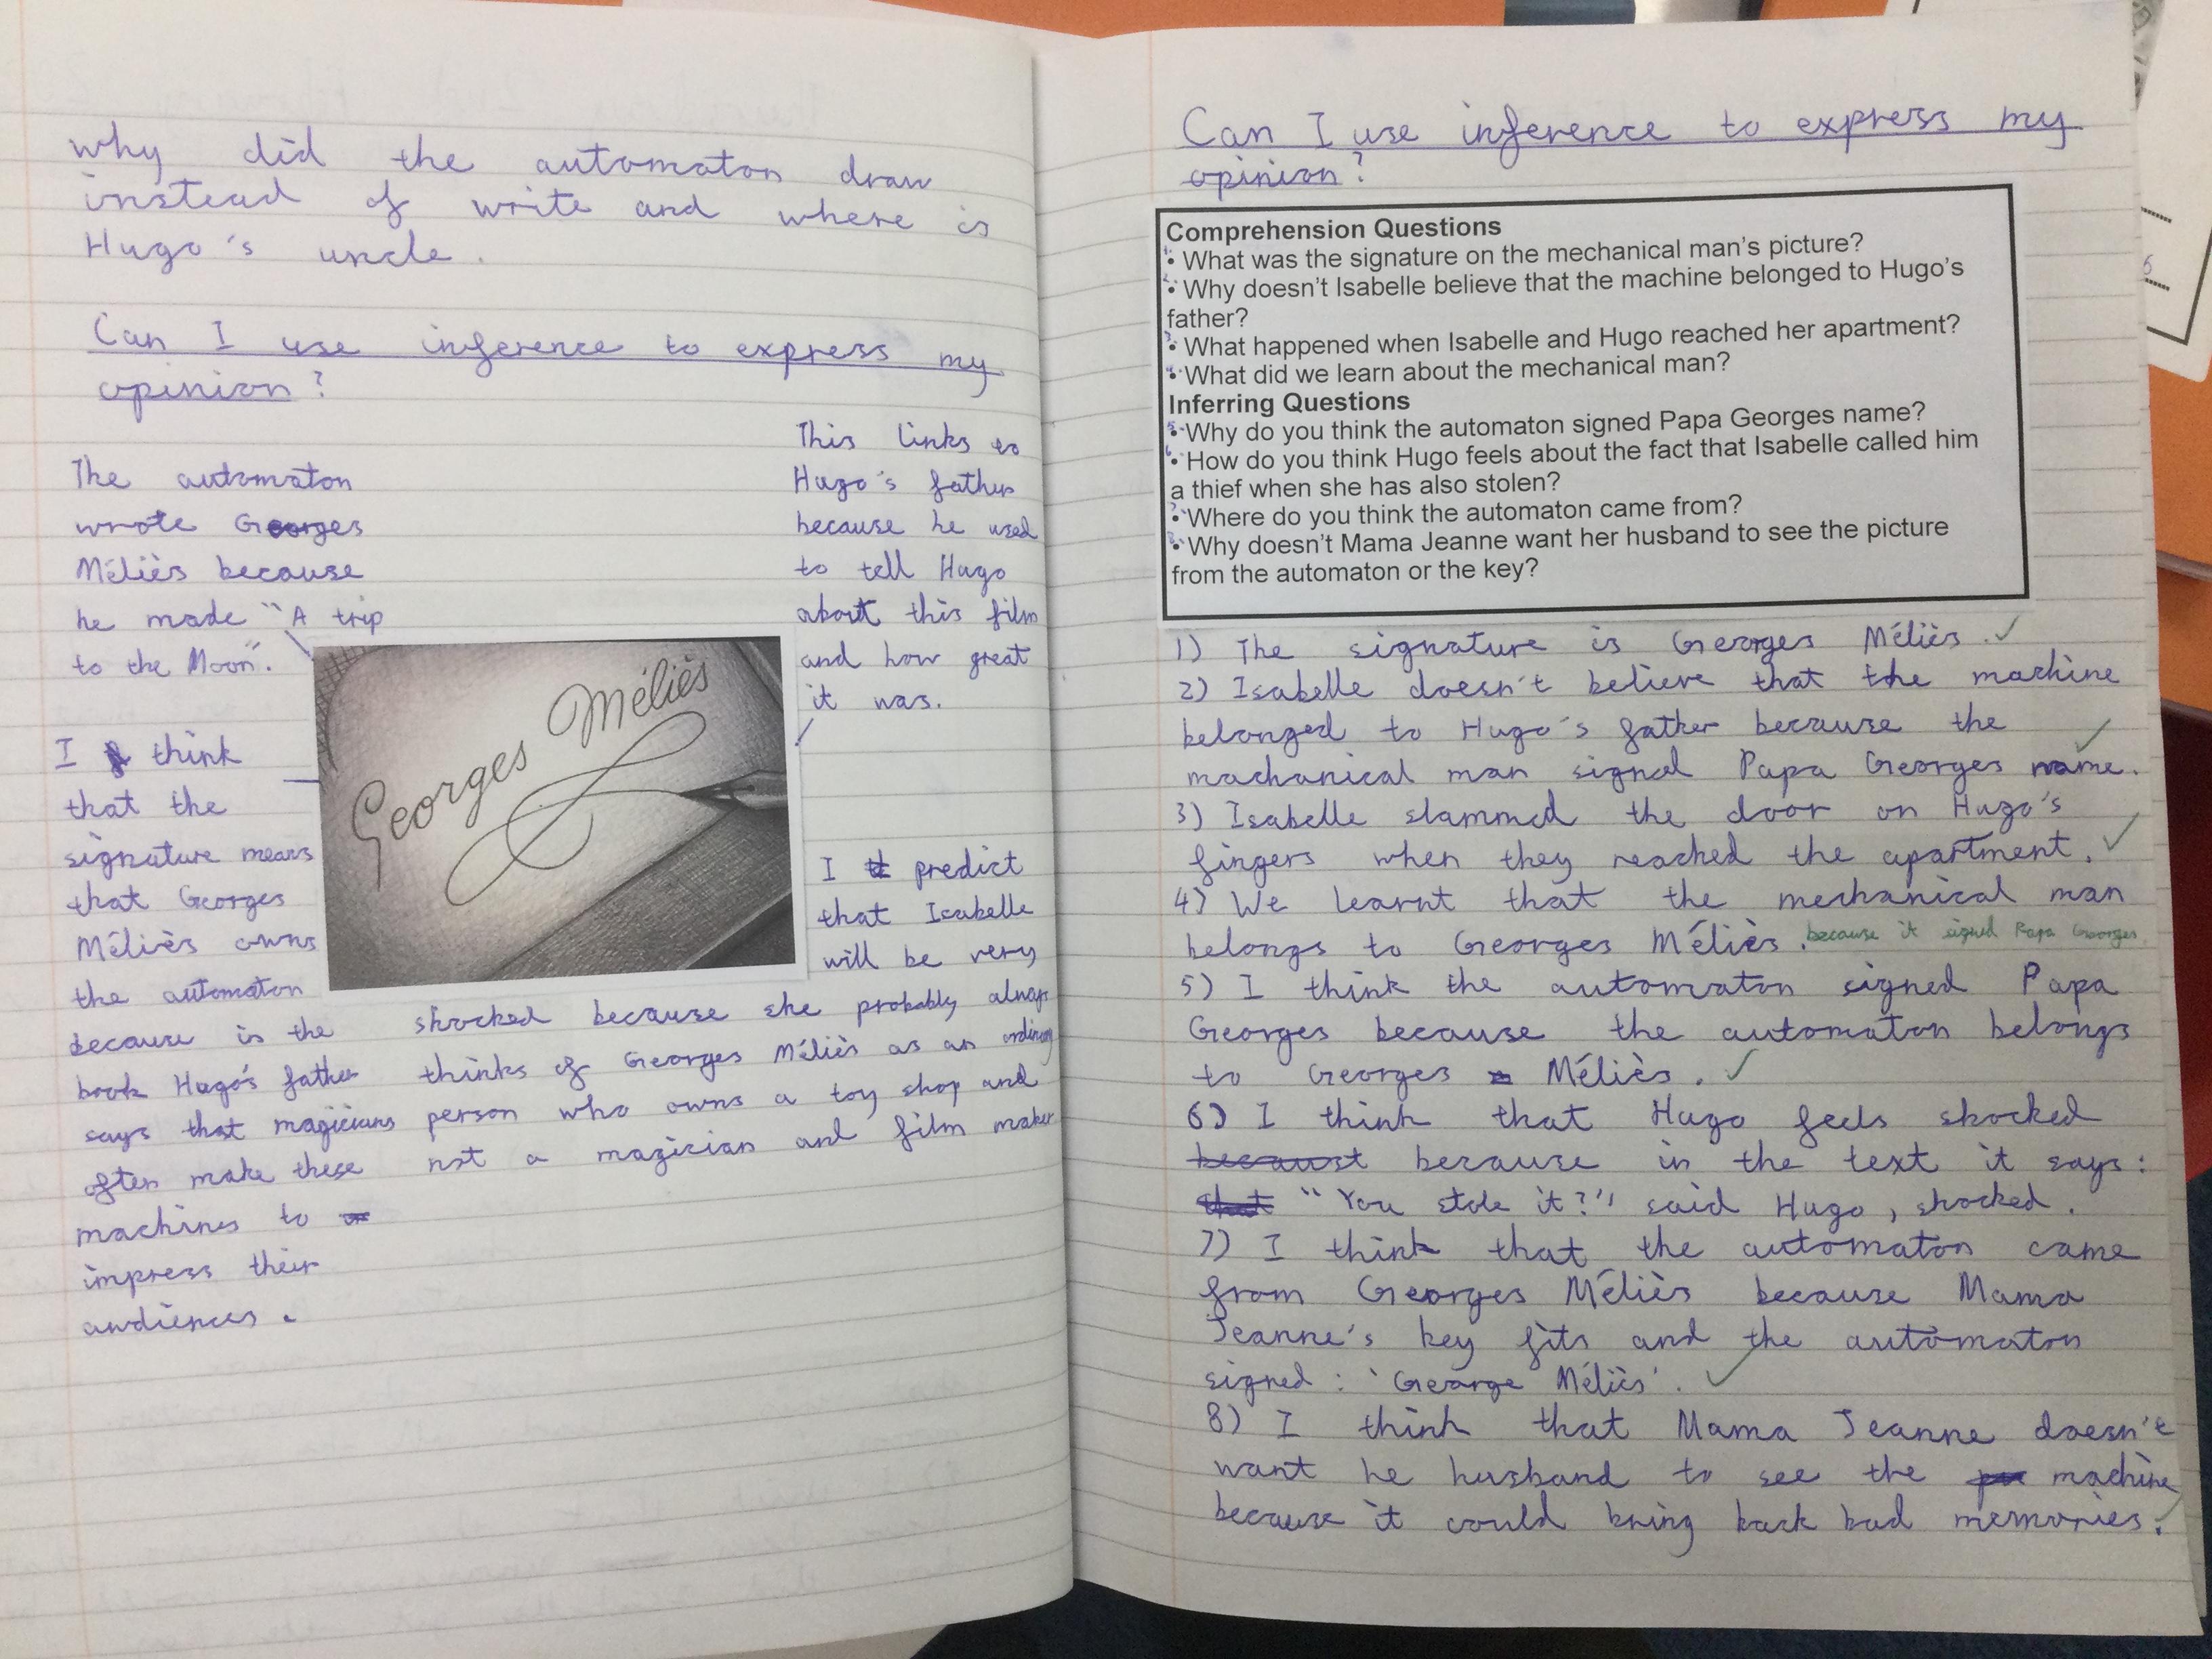 why did the automaton draw
instead of write and where is
Hugo's uncle.
Can I use inference to express my
opinion?
The automaton
wrote Georges
Méliès because
he made "A trip
to the Moon".
I think
that the
signature means
that Georges
Méliès owns
the automaton
because in the
book Hugo's father
says that magicians
often make these
machines to
impress their
audiences.
Georges Méliès
This links to
Hugo's father
because he used
to tell Hugo
about this film
and how great
it was.
I predict
that Isabelle
will be very
shocked because she probably always
thinks of Georges Méliès as an ordinary
person who owns a toy shop and
not a magician and film maker
Can I use inference to express my
opinion?
Comprehension Questions
1. • What was the signature on the mechanical man's picture?
2. • Why doesn't Isabelle believe that the machine belonged to Hugo's
father?
3. • What happened when Isabelle and Hugo reached her apartment?
4. • What did we learn about the mechanical man?
Inferring Questions
5. • Why do you think the automaton signed Papa Georges name?
6. • How do you think Hugo feels about the fact that Isabelle called him
a thief when she has also stolen?
7. • Where do you think the automaton came from?
8. • Why doesn't Mama Jeanne want her husband to see the picture
from the automaton or the key?
1) The signature is Georges Méliès. ✓
2) Isabelle doesn't believe that the machine
belonged to Hugo's father because the
machanical man signed Papa Georges name. ✓
3) Isabelle slammed the door on Hugo's
fingers when they reached the apartment. ✓
4) We learnt that the mechanical man
belongs to Georges Méliès. because it signed Papa Georges
5) I think the automaton signed Papa
Georges because the automaton belongs
to Georges Méliès. ✓
6) I think that Hugo feels shocked
becaust because in the text it says:
that "You stole it?" said Hugo, shocked.
7) I think that the automaton came
from Georges Méliès because Mama
Jeanne's key fits and the automaton
signed: 'George Méliès'. ✓
8) I think that Mama Jeanne doesn't
want he husband to see the machine
because it could bring back bad memories. ✓
6